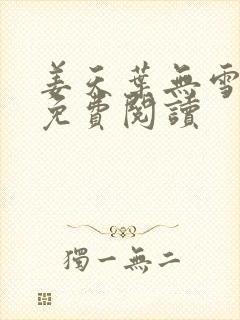 姜天葉無雪
免費閱讀
獨一無二